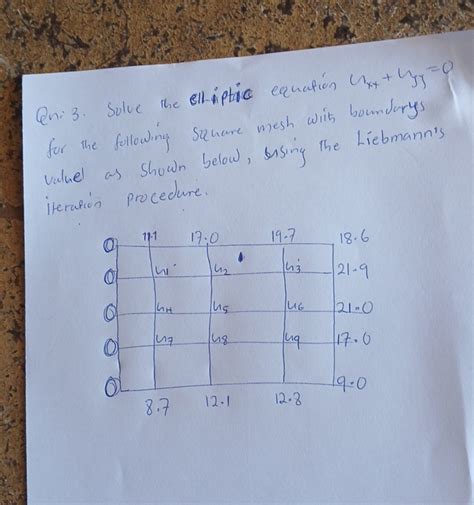 Qn: 3. Solve the elliptic equation Uxx + Uyy = 0
for the following square mesh with boundarys
valuel as shown below, using the Liebmann's
iteration procedure.
0 11.1 17.0 19.7 18.6
0 u1 u2 u3 21.9
0 u4 u5 u6 21.0
0 u7 u8 u9 17.0
0 9.0
8.7 12.1 12.8